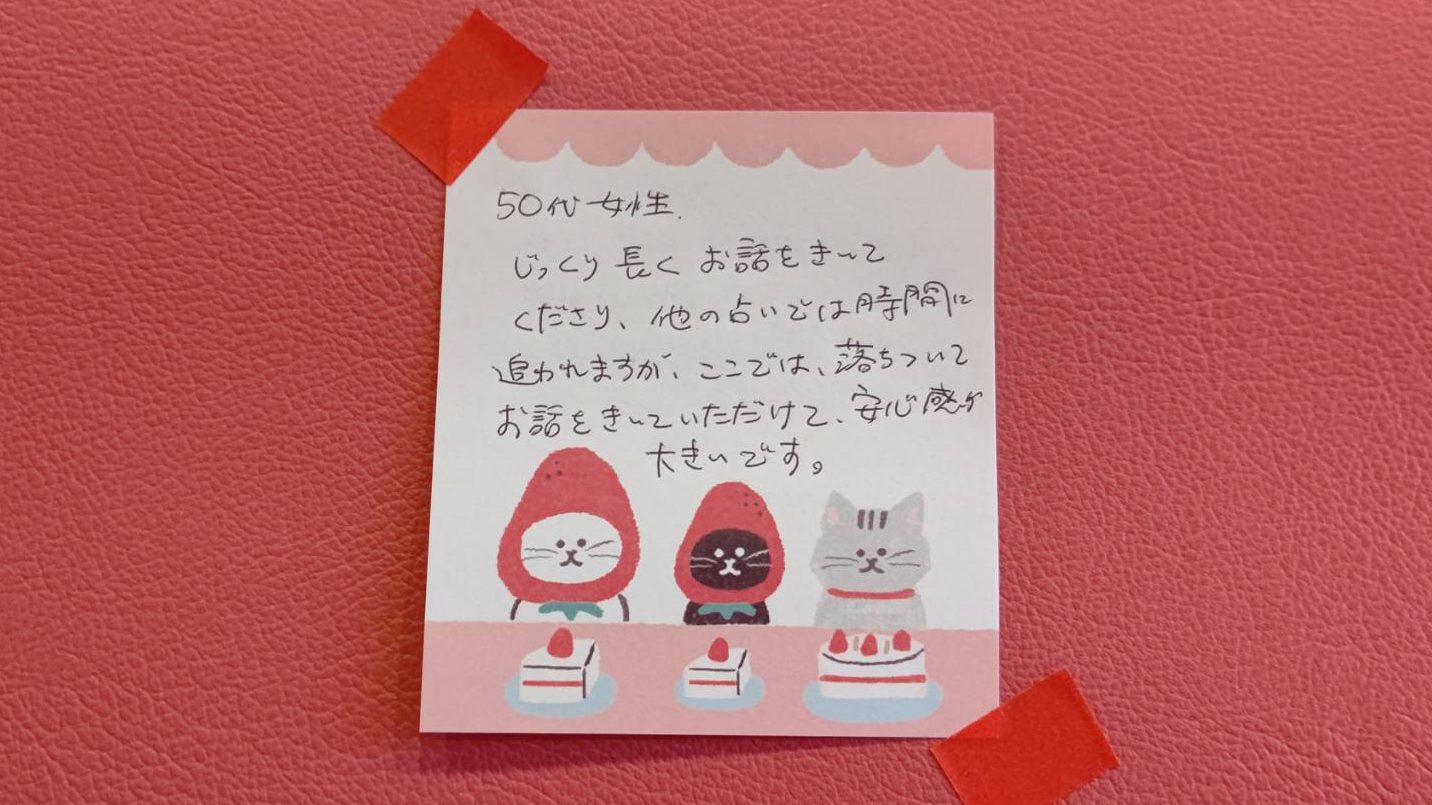 50代 女性.
じっくり 長く お話をきいて
くださり、他の占いでは時間に
追われますが、ここでは、落ちついて
お話をきいていただけて、安心感が
大きいです。